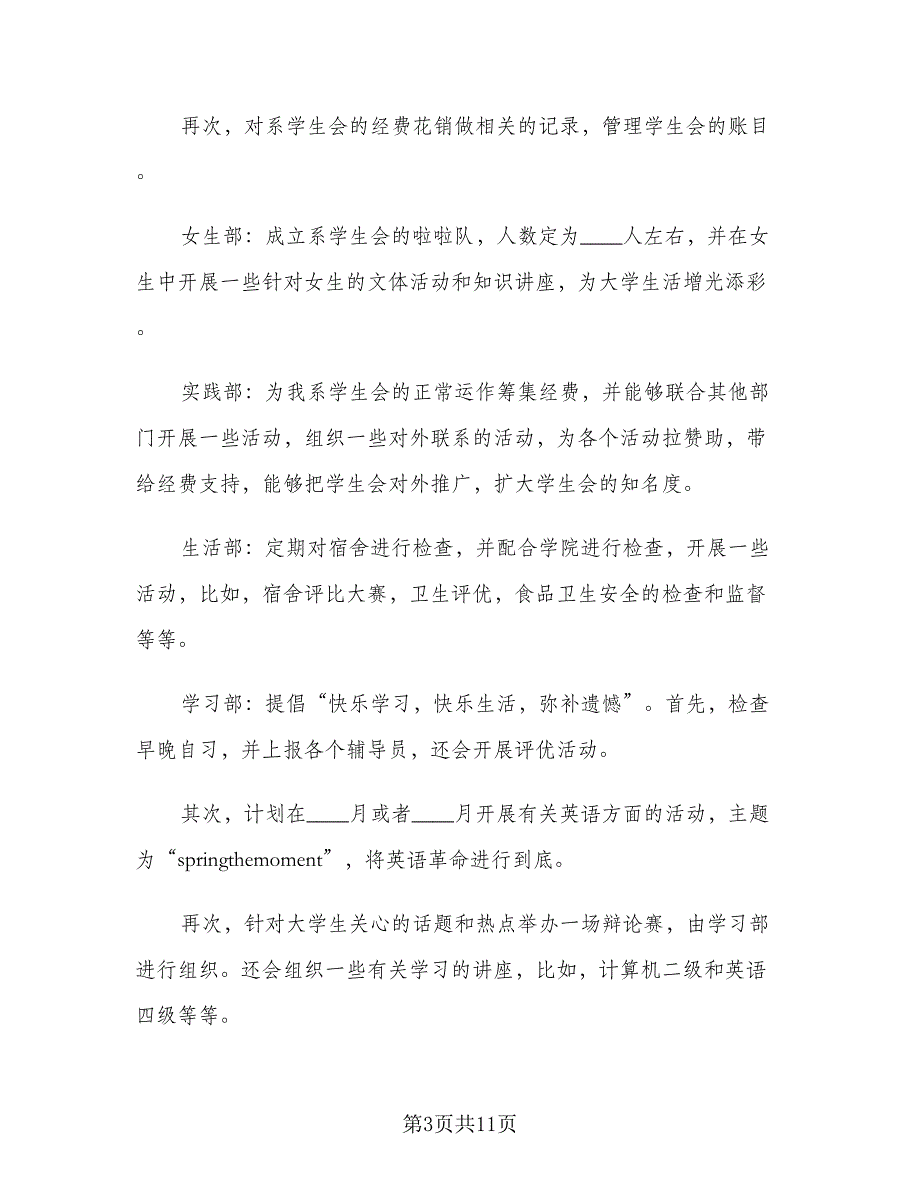 再次，对系学生会的经费花销做相关的记录，管理学生会的账目
。
女生部：成立系学生会的啦啦队，人数定为____人左右，并在女
生中开展一些针对女生的文体活动和知识讲座，为大学生活增光添彩
。
实践部：为我系学生会的正常运作筹集经费，并能够联合其他部
门开展一些活动，组织一些对外联系的活动，为各个活动拉赞助，带
给经费支持，能够把学生会对外推广，扩大学生会的知名度。
生活部：定期对宿舍进行检查，并配合学院进行检查，开展一些
活动，比如，宿舍评比大赛，卫生评优，食品卫生安全的检查和监督
等等。
学习部：提倡“快乐学习，快乐生活，弥补遗憾”。首先，检查
早晚自习，并上报各个辅导员，还会开展评优活动。
其次，计划在____月或者____月开展有关英语方面的活动，主题
为“springthemoment”，将英语革命进行到底。
再次，针对大学生关心的话题和热点举办一场辩论赛，由学习部
进行组织。还会组织一些有关学习的讲座，比如，计算机二级和英语
四级等等。
第3页共11页